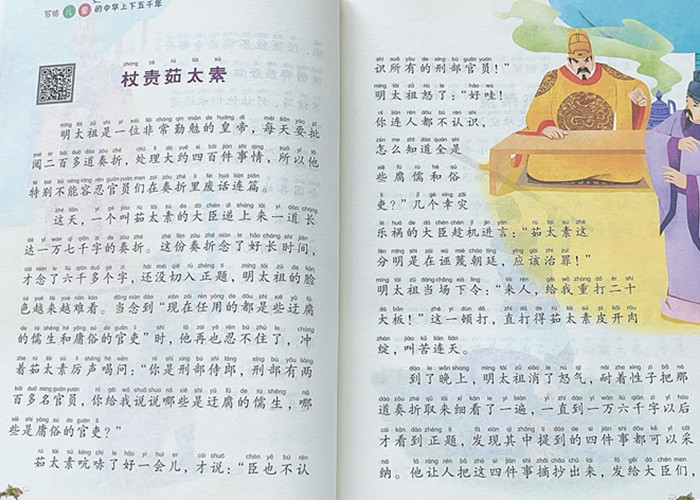 写给儿童的中华上下五千年
杖责茹太素
明太祖是一位非常勤勉的皇帝，每天要批
阅二百多道奏折，处理大约四百件事情，所以他
特别不能容忍官员们在奏折里废话连篇。
这天，一个叫茹太素的大臣递上来一道长
达一万七千字的奏折。这份奏折念了好长时间，
才念了六千多个字，还没切入正题，明太祖的脸
色越来越难看。当念到“现在任用的都是些迂腐
的儒生和庸俗的官吏”时，他再也忍不住了，冲
着茹太素厉声喝问：“你是刑部侍郎，刑部有两
百多名官员，你给我说说哪些是迂腐的儒生，哪
些是庸俗的官吏？”
茹太素吭哧了好一会儿，才说：“臣也不认
识所有的刑部官员！”
明太祖怒了：“好哇！
你连人都不认识，
怎么知道全是
些腐儒和俗
吏？”几个幸灾
乐祸的大臣趁机进言：“茹太素这
分明是在诬蔑朝廷，应该治罪！”
明太祖当场下令：“来人，给我重打二十
大板！”这一顿打，直打得茹太素皮开肉
绽，叫苦连天。
到了晚上，明太祖消了怒气，耐着性子把那
道奏折取来细看了一遍，一直到一万六千字以后
才看到正题，发现其中提到的四件事都可以采
纳。他让人把这四件事摘抄出来，发给大臣们，